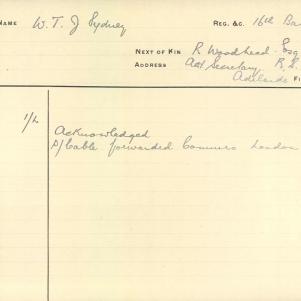 NAME W. T. J Sydney REG. &C. 16th Ba
NEXT OF KIN R Woodhead. Esq
ADDRESS Act Secretary, R. S.
Adelaide
1/2
Acknowledged
P/Cable forwarded Commrs London